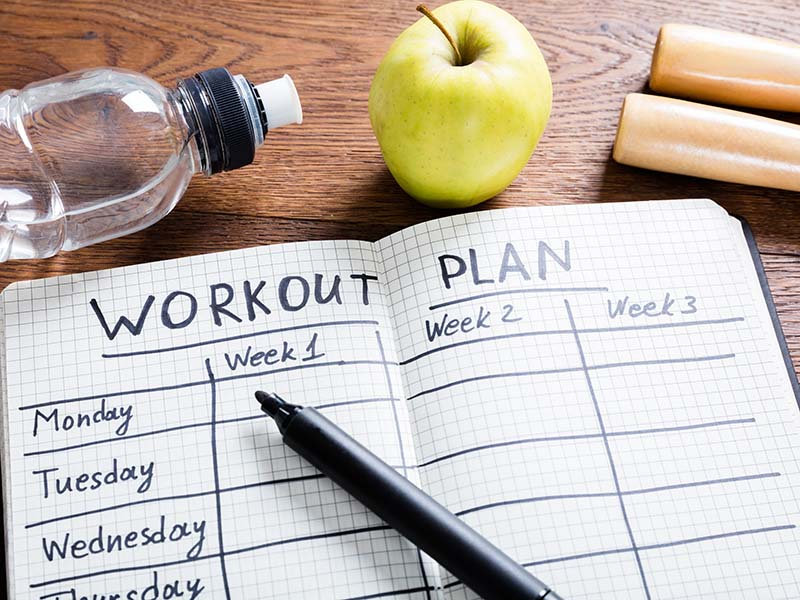 WORKOUT PLAN
Week 1 Week 2 Week 3
Monday
Tuesday
Wednesday
Thursday